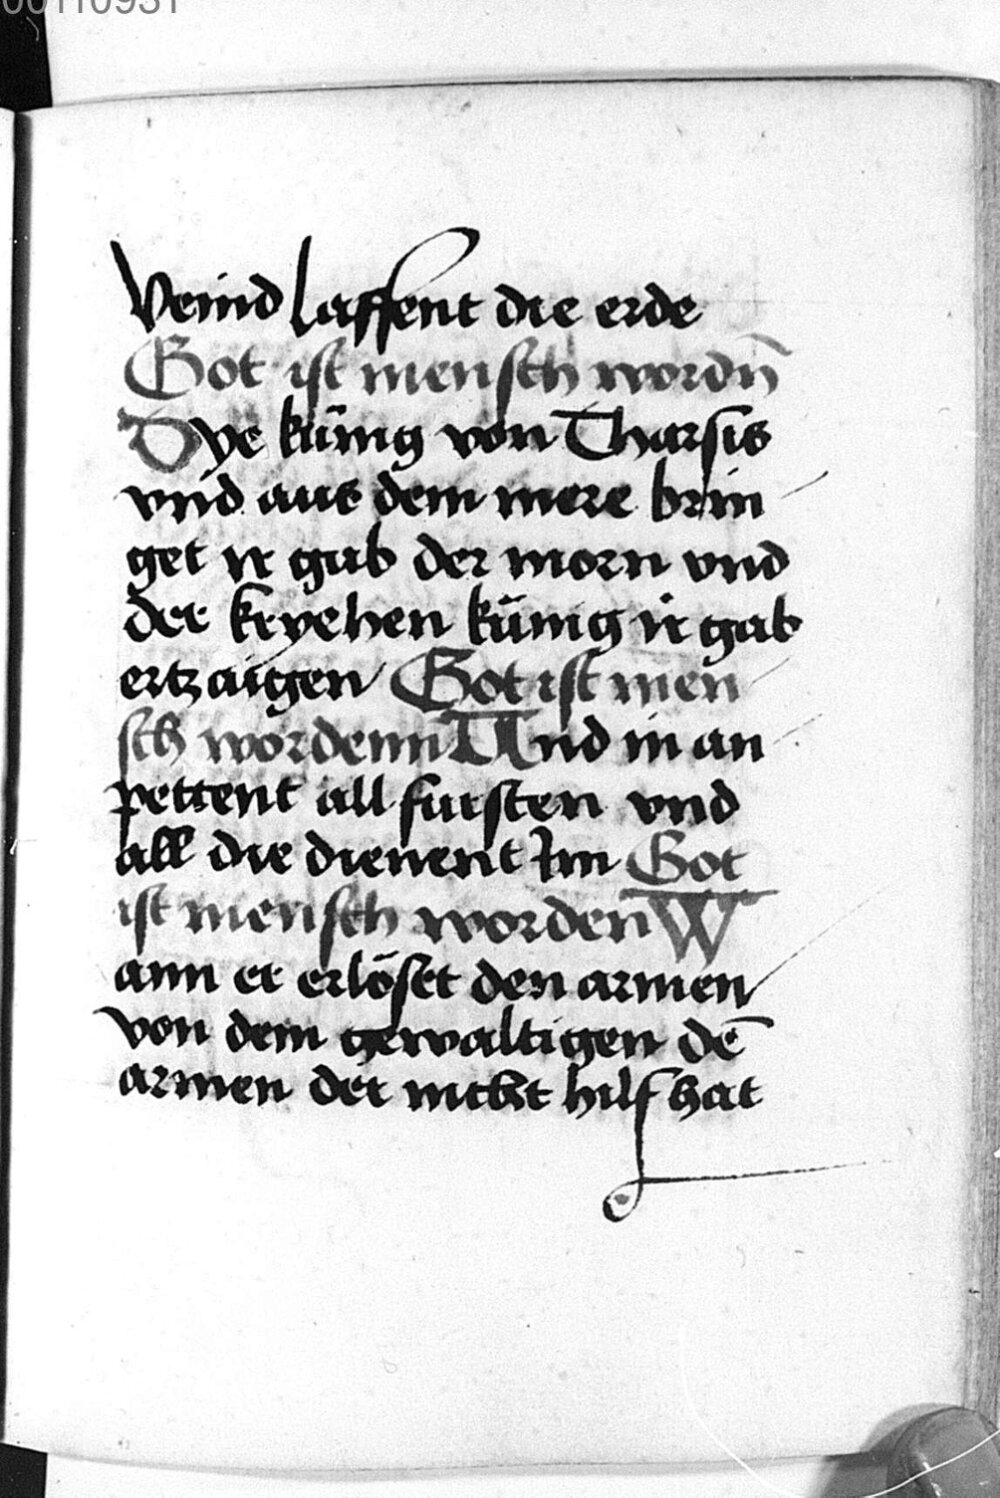 00110931
Veind laffent die erde
Got ist mensch wordn̄
Dye künig von Tharsis
vnd aus dem mere brin
get ir gab der morn vnd
der kryehen künig ir gab
ertzaigen Got ist men
sch wordenn Und in an
pettent all fursten vnd
all die dienent Im Got
ist mensch worden W
ann er erlöset den armen
von dem gewaltigen dē
armen der nicht hilf hat